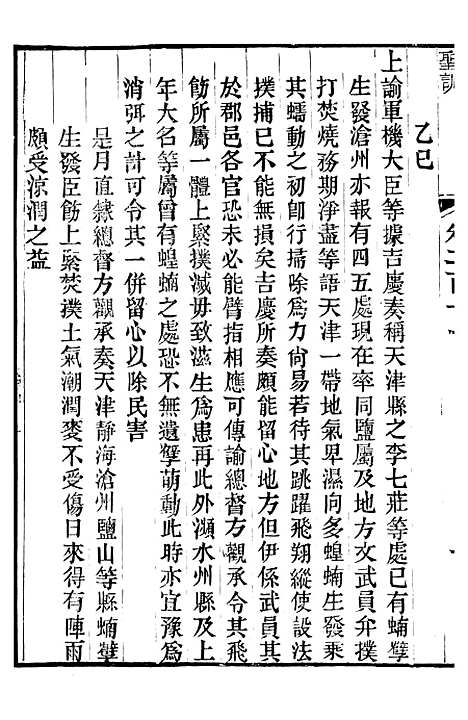 聖訓
乙巳
上諭軍機大臣等據吉慶奏稱天津縣之李七莊等處已有蝻孽
生發滄州亦報有四五處現在率同鹽屬及地方文武員弁撲
打焚燒務期淨盡等語天津一帶地氣卑濕向多蝗蝻生發乘
其蠕動之初卽行掃除爲力尙易若待其跳躍飛翔縱使設法
撲捕已不無損矣吉慶所奏頗能留心地方但伊係武員其
於郡邑各官恐未必能臂指相應可傳諭總督方觀承令其飛
飭所屬一體上緊撲滅毋致滋生爲患再此外瀕水州縣及上
年大名等屬曾有蝗蝻之處恐不無遺孽萌動此時亦宜豫爲
消弭之計可令其一併留心以除民害
是月直隸總督方觀承奏天津靜海滄州鹽山等縣蝻孽
生發臣飭上緊焚撲土氣潮潤麥不受傷日來得有陣雨
頗受涼潤之益